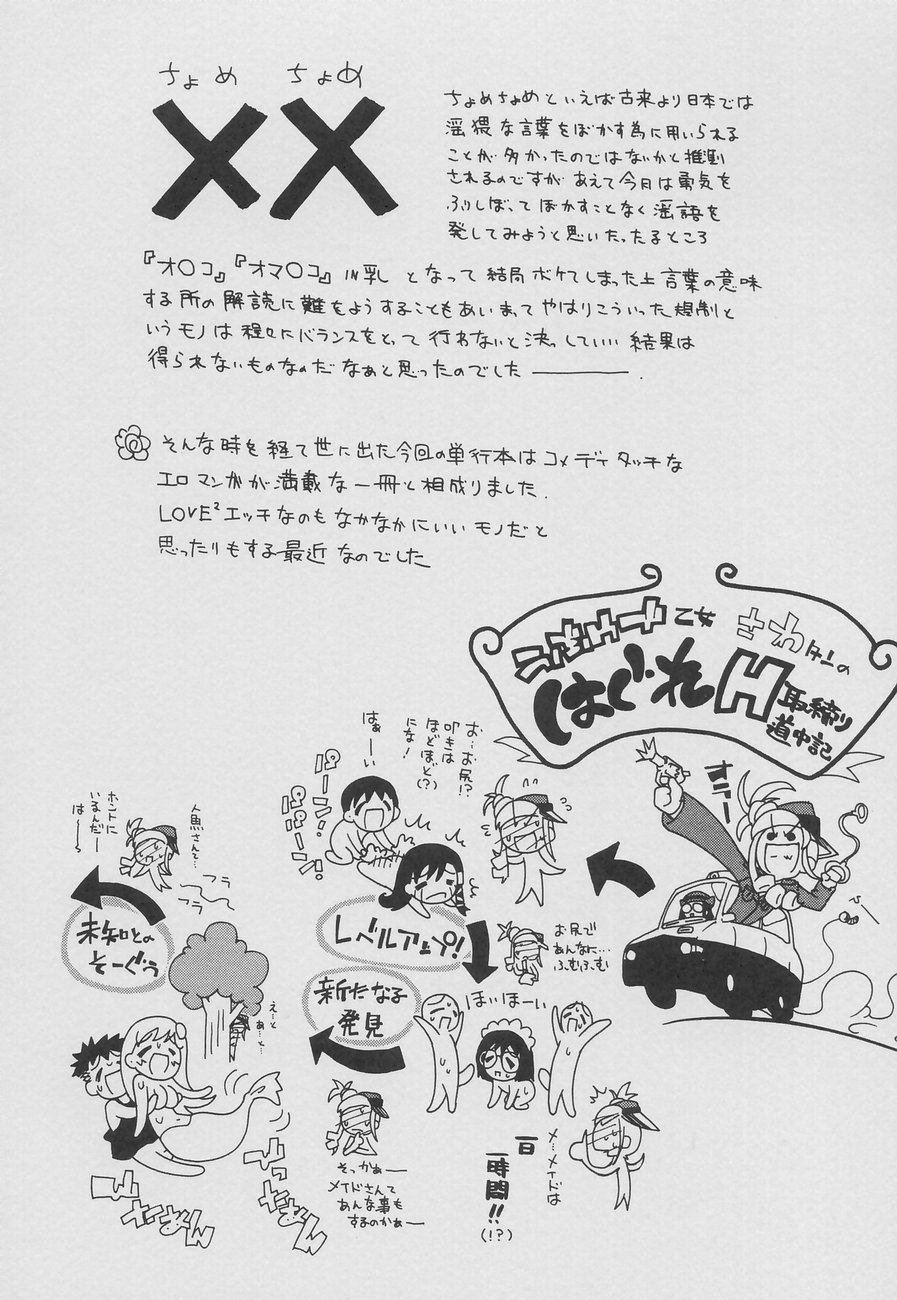 ちょめ ちょめ
××
ちょめちょめといえば古来より日本では
淫猥な言葉をぼかす為に用いられる
ことが多かったのではないかと推測
されるのですが あえて今日は勇気を
ふりしぼって ぼかすことなく淫語を
発してみようと思いたったるところ
『オ○コ』『オマ○コ』IN乳 となって結局ボケてしまった上言葉の意味
する所の解読に難をようすることもあいまって やはりこういった規制と
いうモノは程々にバランスをとって行わないと決っしていい結果は
得られないものなのだなぁと思ったのでした ────.
そんな時を経て世に出た今回の単行本はコメディタッチな
エロマンガが満載な一冊と相成りました.
LOVE²エッチなのもなかなかにいいモノだと
思ったりもする最近なのでした
乙女 さわタンの
はぐれH取締り
道中記
お…お尻!?
叩きは
ほどほど(?)
にな!
はぁーい
パーン!
パーン!
レベルアップ!
お尻で
あんなに…
ふむふむ
ほいほーい
メ…メイドは
一日
一時間!!
(!?)
新たな子
発見
そっかぁー
メイドさんて
あんな事も
するのかぁー
えーと
ぁーと…
未知との
そーぐう
人魚さんて…
ホントに
いるんだー
はーっ
フラ
フラ